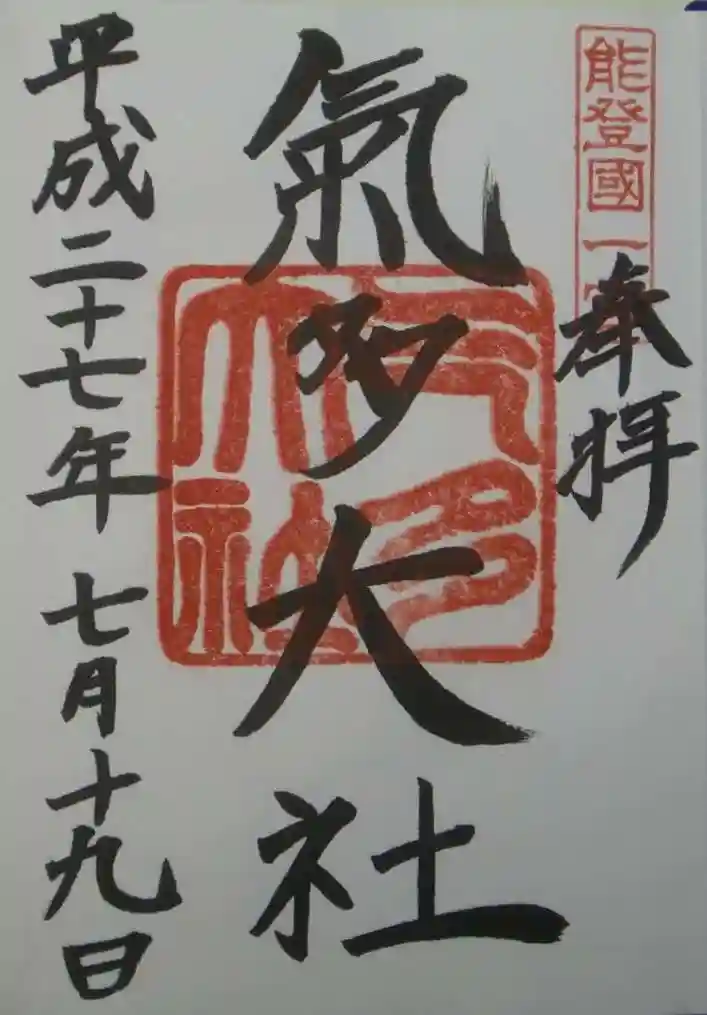 能登國一宮
奉拝
氣多大社
气多大社
平成二十七年七月十九日